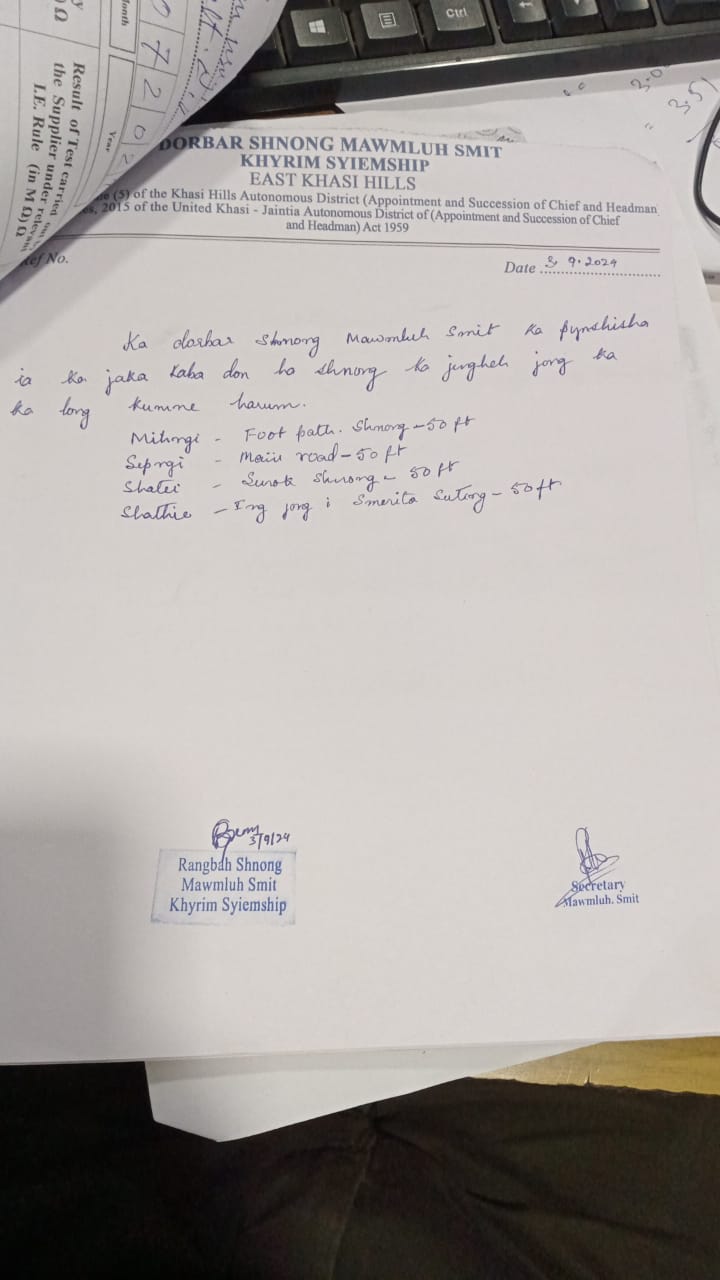 Ctrl
DORBAR SHNONG MAWMLUH SMIT
KHYRIM SYIEMSHIP
EAST KHASI HILLS
(5) of the Khasi Hills Autonomous District (Appointment and Succession of Chief and Headman
2015 of the United Khasi - Jaintia Autonomous District of (Appointment and Succession of Chief
and Headman) Act 1959
Ref No.
Date 3 9.2024
Ka dorbar Shnong Mawmluh Smit ka pynshisha
ia ka jaka kaba don ha shnong ka jingheh jong ka
ka long kumne harum.
Mihngi - Foot path. Shnong - 50 ft
Sepngi - Main road - 50 ft
Shatei - Surok shnong - 50 ft
Shathie - Ing jong i Smerita Suting - 50 ft
3/9/24
Rangbah Shnong
Mawmluh Smit
Khyrim Syiemship
Secretary
Mawmluh. Smit
Month
7 2 0 2
Year
Result of Test carried out
the Supplier under relevant
I.E. Rule (in M Ω) Ω